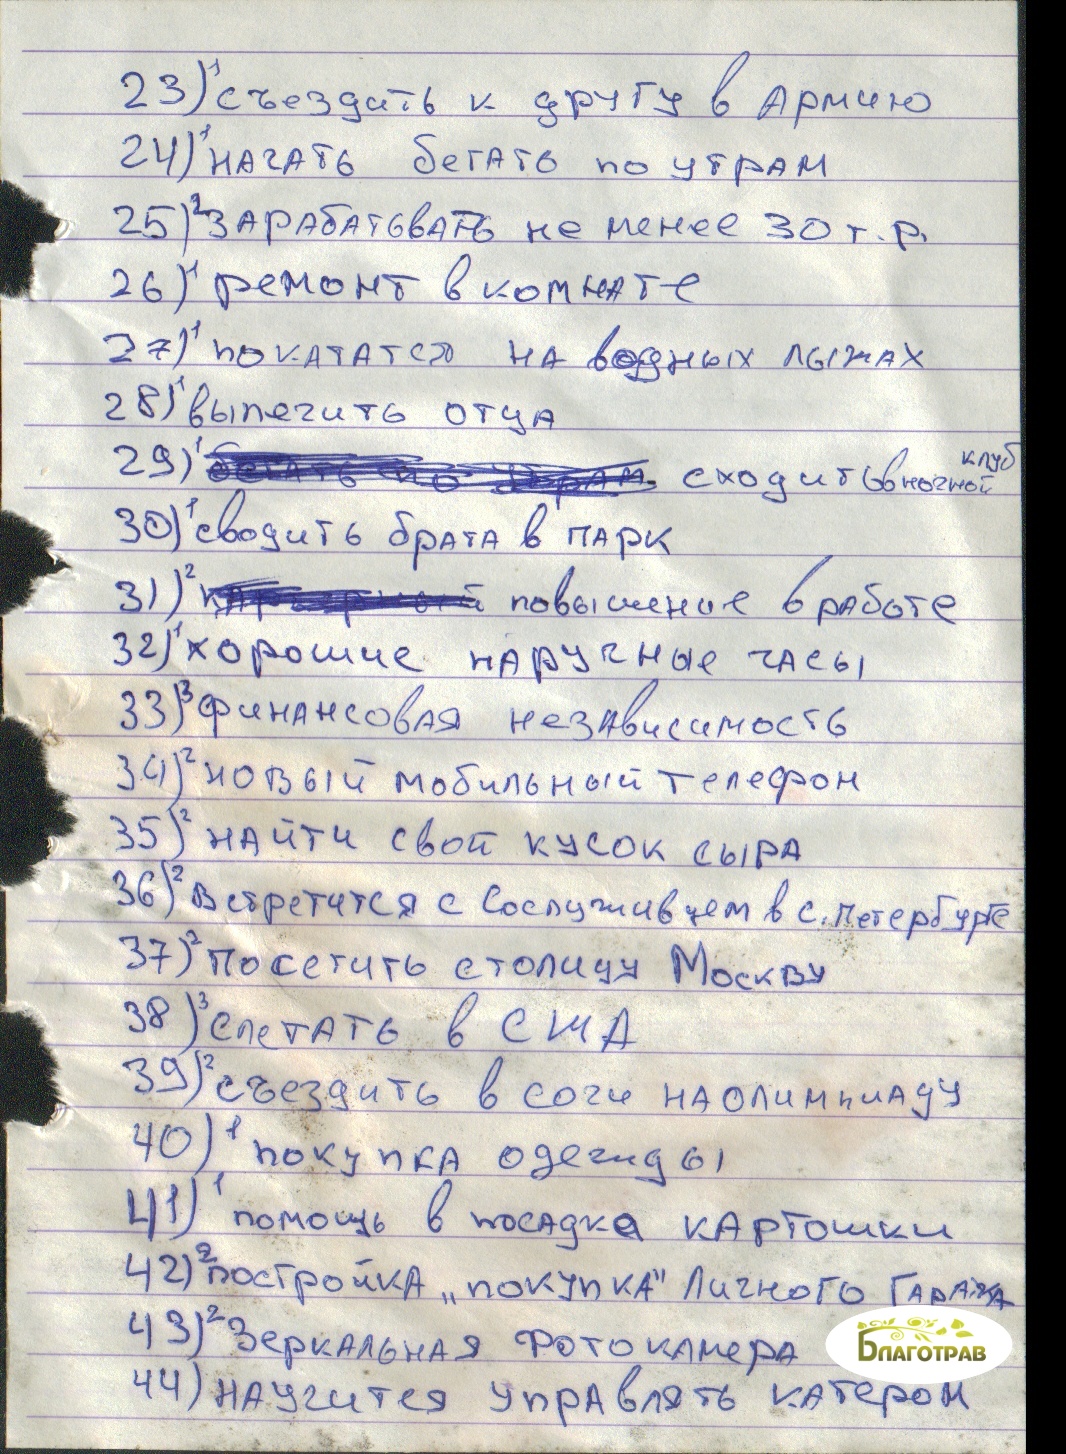 23)¹ съездить к другу в Армию
24)¹ начать бегать по утрам
25)² Зарабатывать не менее 30 т.р.
26)¹ ремонт в комнате
27)¹ покататся на водных лыжах
28)¹ вылечить отца
29)¹ бегать по утрам сходить в ночной клуб
30)¹ сводить брата в парк
31)² карьерный повышение в работе
32)¹ хорошие наручные часы
33)³ финансовая независимость
34)² новый мобильный телефон
35)² найти свой кусок сыра
36)² Встретится с Сослуживцем в С.Петербурге
37)² Посетить столицу Москву
38)³ слетать в США
39)² съездить в сочи на олимпиаду
40)¹ покупка одежды
41)¹ помощь в посадке картошки
42)² постройка „покупка" Личного Гаража
43)² Зеркальная Фотокамера
44) научится управлять катером
Благотрав